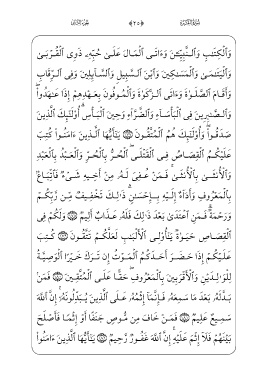 سُورَةُ البَقَرَةِ ﴿٢٥﴾ الجُزْءُ الثَّانِي
وَٱلْكِتَٰبِ وَٱلنَّبِيِّـۧنَ وَءَاتَى ٱلْمَالَ عَلَىٰ حُبِّهِۦ ذَوِى ٱلْقُرْبَىٰ
وَٱلْيَتَٰمَىٰ وَٱلْمَسَٰكِينَ وَٱبْنَ ٱلسَّبِيلِ وَٱلسَّآئِلِينَ وَفِى ٱلرِّقَابِ
وَأَقَامَ ٱلصَّلَوٰةَ وَءَاتَى ٱلزَّكَوٰةَ وَٱلْمُوفُونَ بِعَهْدِهِمْ إِذَا عَٰهَدُوا۟
وَٱلصَّٰبِرِينَ فِى ٱلْبَأْسَآءِ وَٱلضَّرَّآءِ وَحِينَ ٱلْبَأْسِ أُو۟لَٰٓئِكَ ٱلَّذِينَ
صَدَقُوا۟ وَأُو۟لَٰٓئِكَ هُمُ ٱلْمُتَّقُونَ ﴿١٧٧﴾ يَٰٓأَيُّهَا ٱلَّذِينَ ءَامَنُوا۟ كُتِبَ
عَلَيْكُمُ ٱلْقِصَاصُ فِى ٱلْقَتْلَى ٱلْحُرُّ بِٱلْحُرِّ وَٱلْعَبْدُ بِٱلْعَبْدِ
وَٱلْأُنثَىٰ بِٱلْأُنثَىٰ فَمَنْ عُفِىَ لَهُۥ مِنْ أَخِيهِ شَىْءٌ فَٱتِّبَاعٌۢ
بِٱلْمَعْرُوفِ وَأَدَآءٌ إِلَيْهِ بِإِحْسَٰنٍ ذَٰلِكَ تَخْفِيفٌ مِّن رَّبِّكُمْ
وَرَحْمَةٌ فَمَنِ ٱعْتَدَىٰ بَعْدَ ذَٰلِكَ فَلَهُۥ عَذَابٌ أَلِيمٌ ﴿١٧٨﴾ وَلَكُمْ فِى
ٱلْقِصَاصِ حَيَوٰةٌ يَٰٓأُو۟لِى ٱلْأَلْبَٰبِ لَعَلَّكُمْ تَتَّقُونَ ﴿١٧٩﴾ كُتِبَ
عَلَيْكُمْ إِذَا حَضَرَ أَحَدَكُمُ ٱلْمَوْتُ إِن تَرَكَ خَيْرًا ٱلْوَصِيَّةُ
لِلْوَٰلِدَيْنِ وَٱلْأَقْرَبِينَ بِٱلْمَعْرُوفِ حَقًّا عَلَى ٱلْمُتَّقِينَ ﴿١٨٠﴾ فَمَنۢ
بَدَّلَهُۥ بَعْدَ مَا سَمِعَهُۥ فَإِنَّمَآ إِثْمُهُۥ عَلَى ٱلَّذِينَ يُبَدِّلُونَهُۥٓ إِنَّ ٱللَّهَ
سَمِيعٌ عَلِيمٌ ﴿١٨١﴾ فَمَنْ خَافَ مِن مُّوصٍ جَنَفًا أَوْ إِثْمًا فَأَصْلَحَ
بَيْنَهُمْ فَلَآ إِثْمَ عَلَيْهِ إِنَّ ٱللَّهَ غَفُورٌ رَّحِيمٌ ﴿١٨٢﴾ يَٰٓأَيُّهَا ٱلَّذِينَ ءَامَنُوا۟